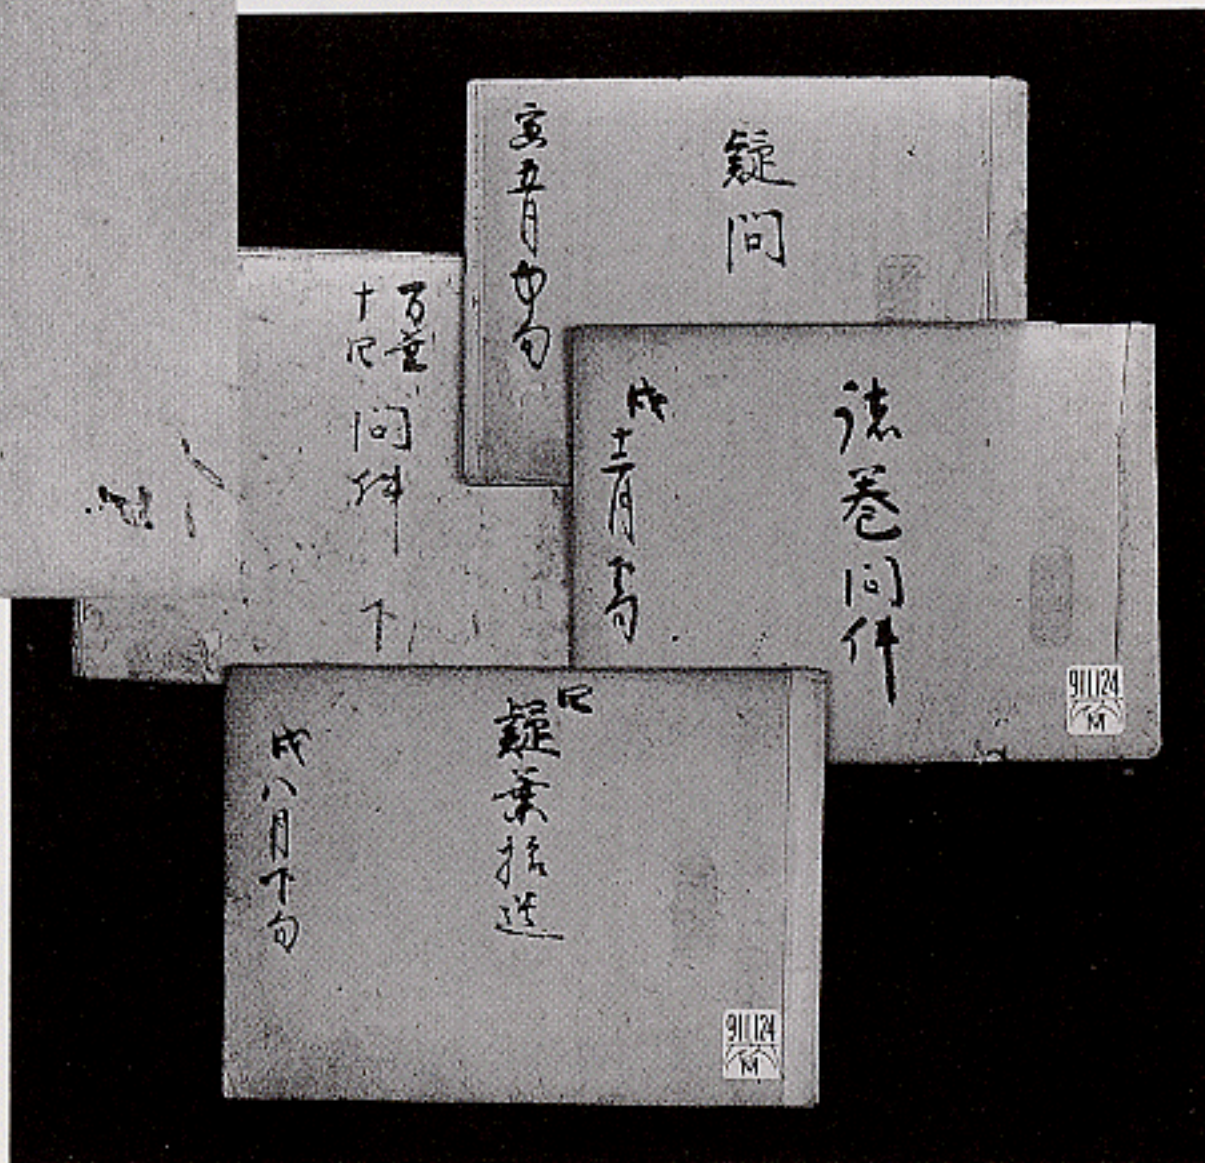 疑問
亥五月中旬
万葉
十尺
問件
下
諸巻問件
戌十二月下旬
911.124
M
尺
疑葉拾遺
戌八月下旬
911.124
M